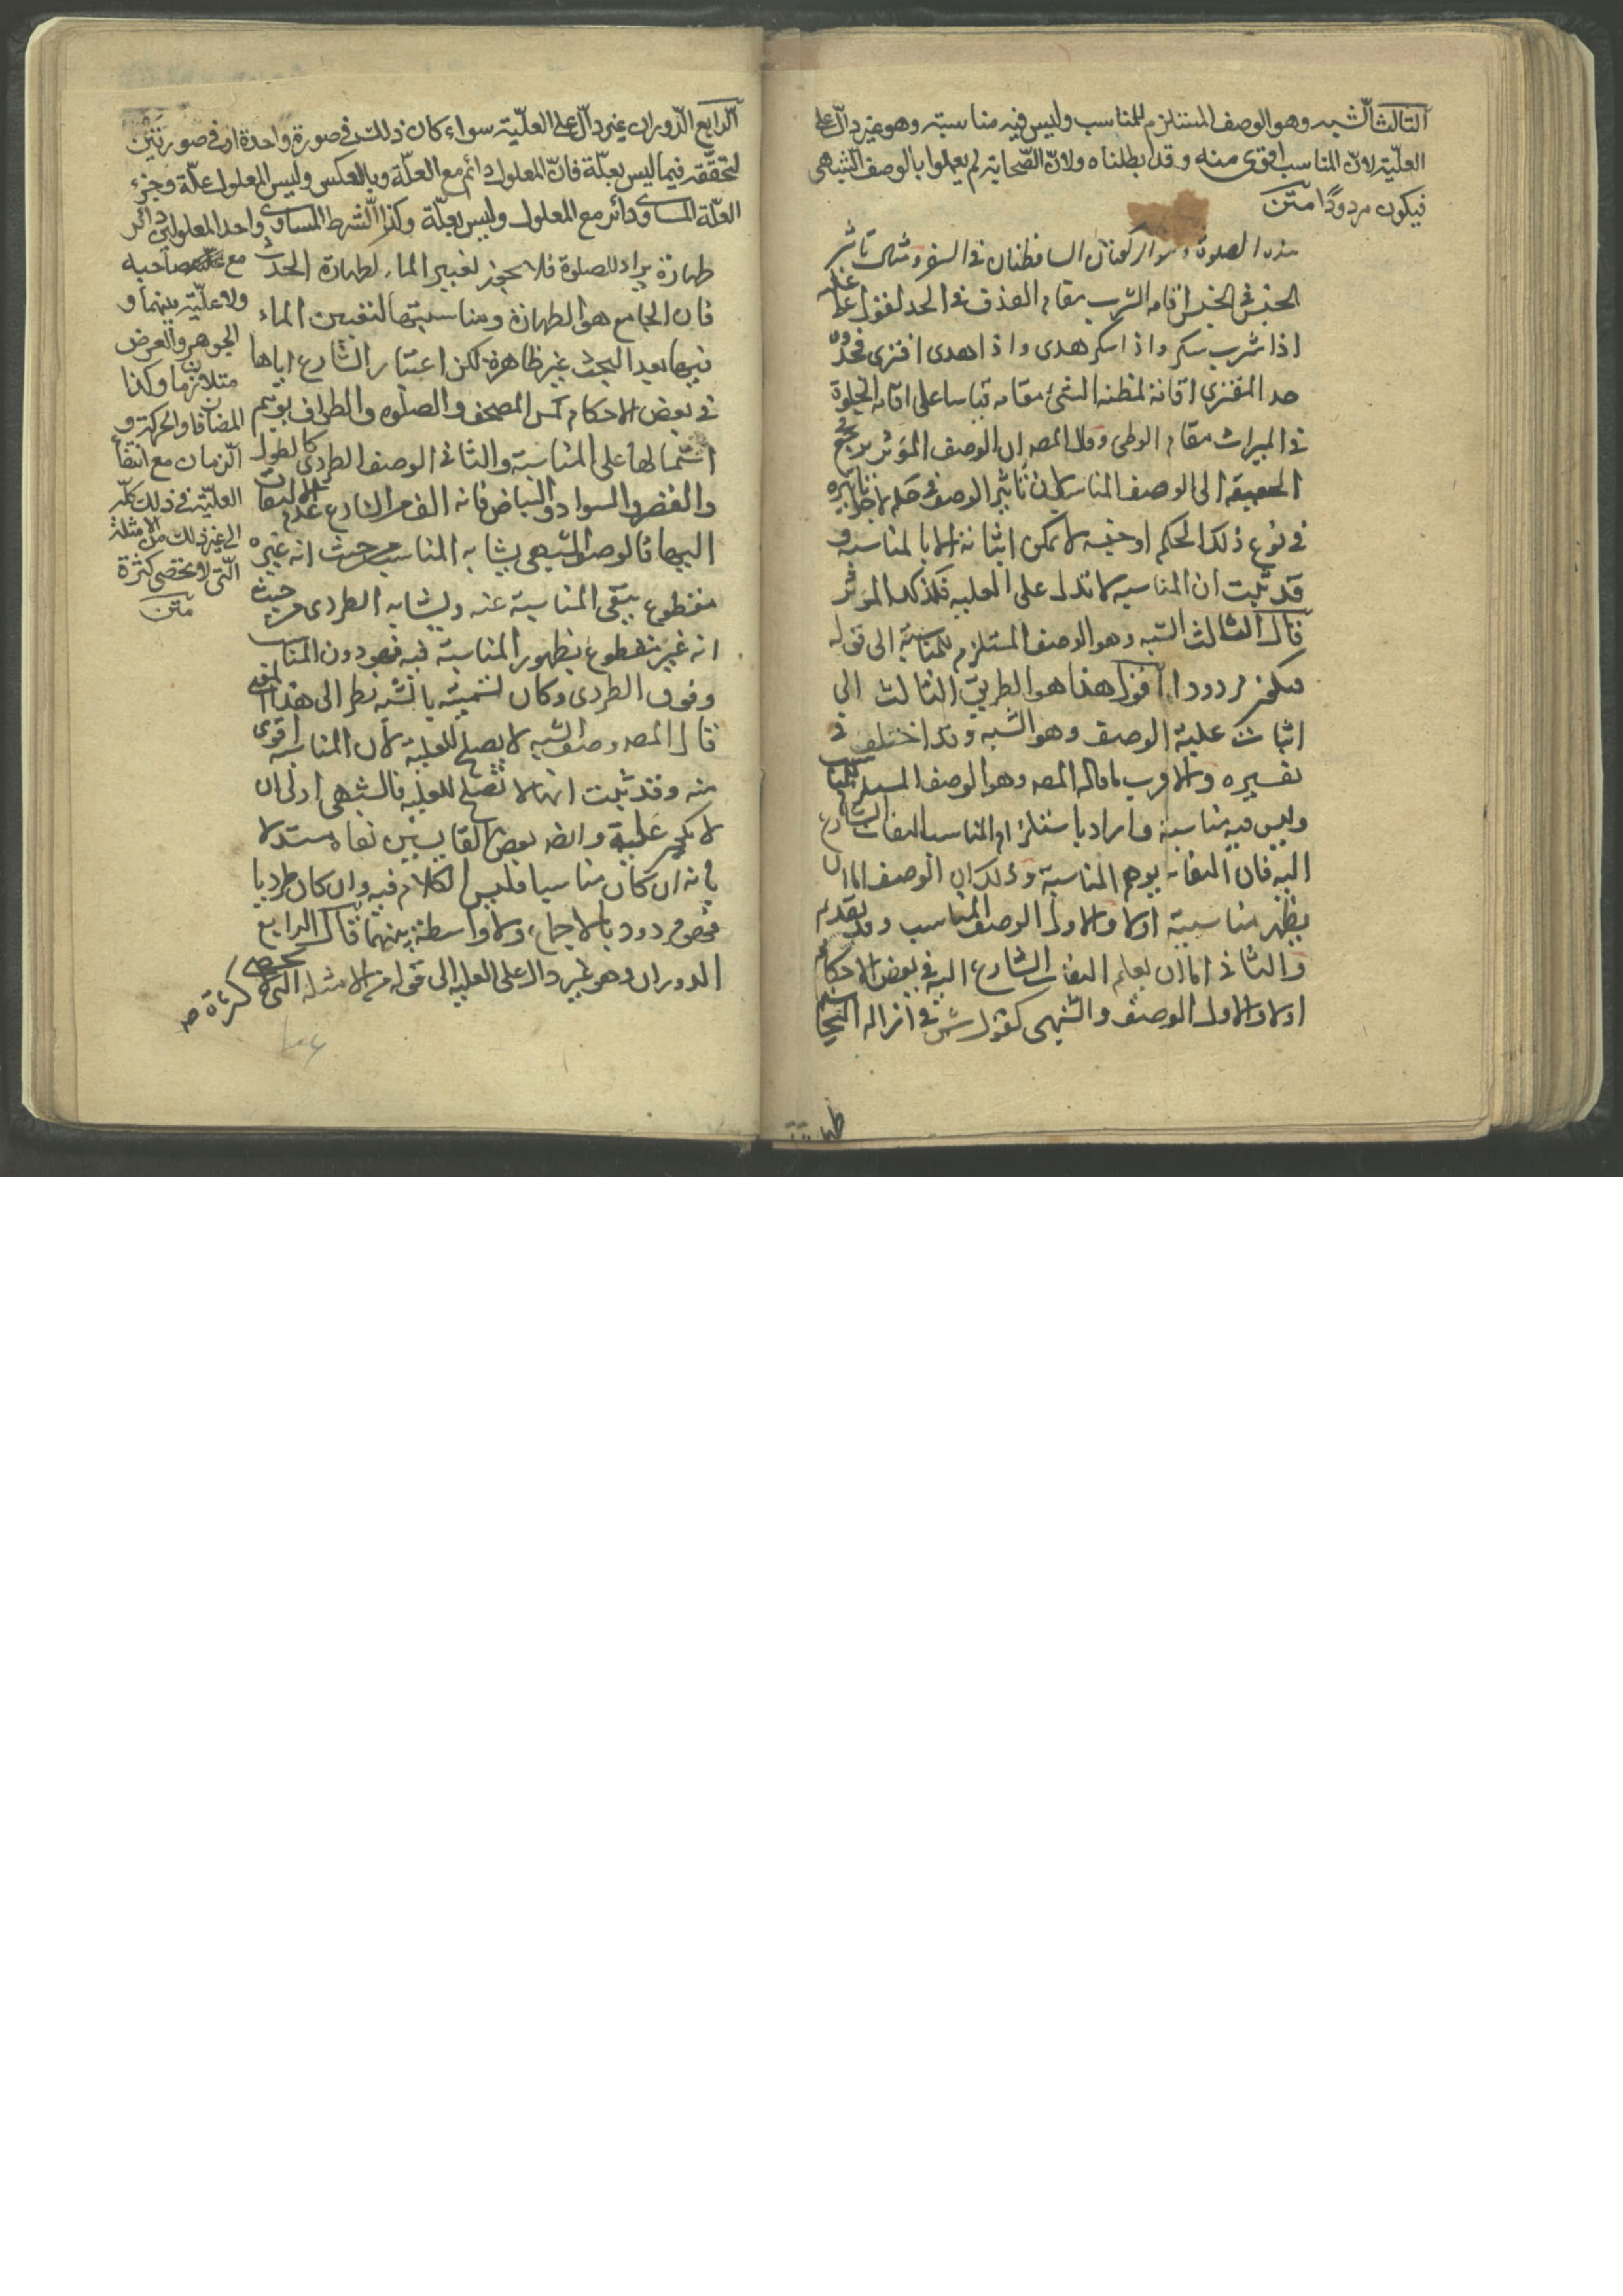 الثالث الشبه وهو الوصف المستلزم للمناسب وليس فيه مناسبة وهو غير دالّ على
العلّيّة لانّ المناسب اقوى منه وقد ابطلناه ولانّ الصّحابة لم يعملوا بالوصف الشبهى
فيكون مردودًا متن
هذه الصلوة الركعتان الساقطتان فى السفر ومثال تاثير
الجنس فى الجنس اقامة الشرب مقام القذف فى الحد لقول على عليه
اذا شرب سكر واذا سكر هذى واذا هذى افترى فحدوه
حد المفترى اقامة لمظنة الشئ مقامه قياسا على اقامة الخلوة
فى الميراث مقام الوطى وقال المصه ان الوصف المؤثر يرجع فى
الحقيقة الى الوصف المناسب لان تاثير الوصف فى تاثيره
فى نوع ذلك الحكم او جنسه لا يمكن اثباته الا بالمناسبة و
قد ثبت ان المناسبة لا تدل على العلية فكذلك المؤثر
قال الثالث الشبه وهو الوصف المستلزم للمناسبة الى قوله
فيكون مردودا اقول هذا هو الطريق الثالث الى
اثبات علية الوصف وهو الشبه وقد اختلف فى
تفسيره والاقرب ما قاله المصه وهو الوصف المستلزم للمناسب
وليس فيه مناسبة واراد باستلزام المناسب التفات الشارع
اليه فان التفاته يوهم المناسبة وذلك ان الوصف اما ان
يظهر مناسبته اولا والاول الوصف المناسب وقد تقدم
والثانى اما ان يعلم التفات الشارع اليه فى بعض الاحكام
اولا والاول الوصف الشبهى كقول ش فى ازالة النجاسة
طهارة
الرّابع الدّوران غير دالّ على العلّيّة سواء كان ذلك فى صورة واحدة او فى صورتين
لتحقّقه فيما ليس بعلّة فانّ المعلول دائم مع العلّة وبالعكس وليس المعلول علّة وجزء
العلّة المساوى دائر مع المعلول وليس بعلّة وكذا الشرط المساوى واحد المعلولين دائر
مع صاحبه
ولا علّيّة بينهما و
الجوهر والعرض
متلازمان وكذا
المضافان والحركة و
الزمان مع انتفاء
العلّيّة فى ذلك كلّه
الى غير ذلك من الامثلة
الّتى لا تحصى كثرة
متن
طهارة يراد للصلوة فلا يجوز لغير الماء كطهارة الحدث
فان الجامع هو الطهارة ومناسبتها لتعيين الماء
فيها بعد البحث غير ظاهرة لكن اعتبار الشارع اياها
فى بعض الاحكام كمس المصحف والصلوة والطواف يوهم
اشتمالها على المناسبة والثانى الوصف الطردى كالطول
والقصر والسواد والبياض فانه الف من الشارع عدم الالتفات
اليها فالوصف الشبهى يشابه المناسب من حيث انه غير
مقطوع بنفى المناسبة عنه ويشابه الطردى من حيث
انه غير مقطوع بظهور المناسبة فيه فهو دون المناسب
وفوق الطردى وكان تسميته بالشبه نظرا الى هذا المعنى
قال المصه وصف الشبه لا يصلح للعلية لان المناسبة اقوى
منه وقد ثبت انها لا تصلح للعلية فالشبهى اولى ان
لا يكون علية وايضا بعض القايسين نفاه مستدلا
بانه ان كان مناسبا فليس الكلام فيه وان كان طرديا
فهو مردود بالاجماع ولا واسطة بينهما قال الرابع
الدوران وهو غير دال على العلية الى قوله من الامثلة التى لا تحصى كثرة